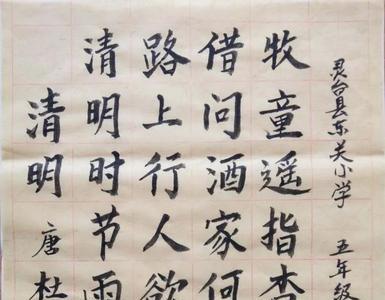 清明 唐 杜
清明时节雨
路上行人欲
借问酒家何
牧童遥指杏
灵台县东关小学 五年级